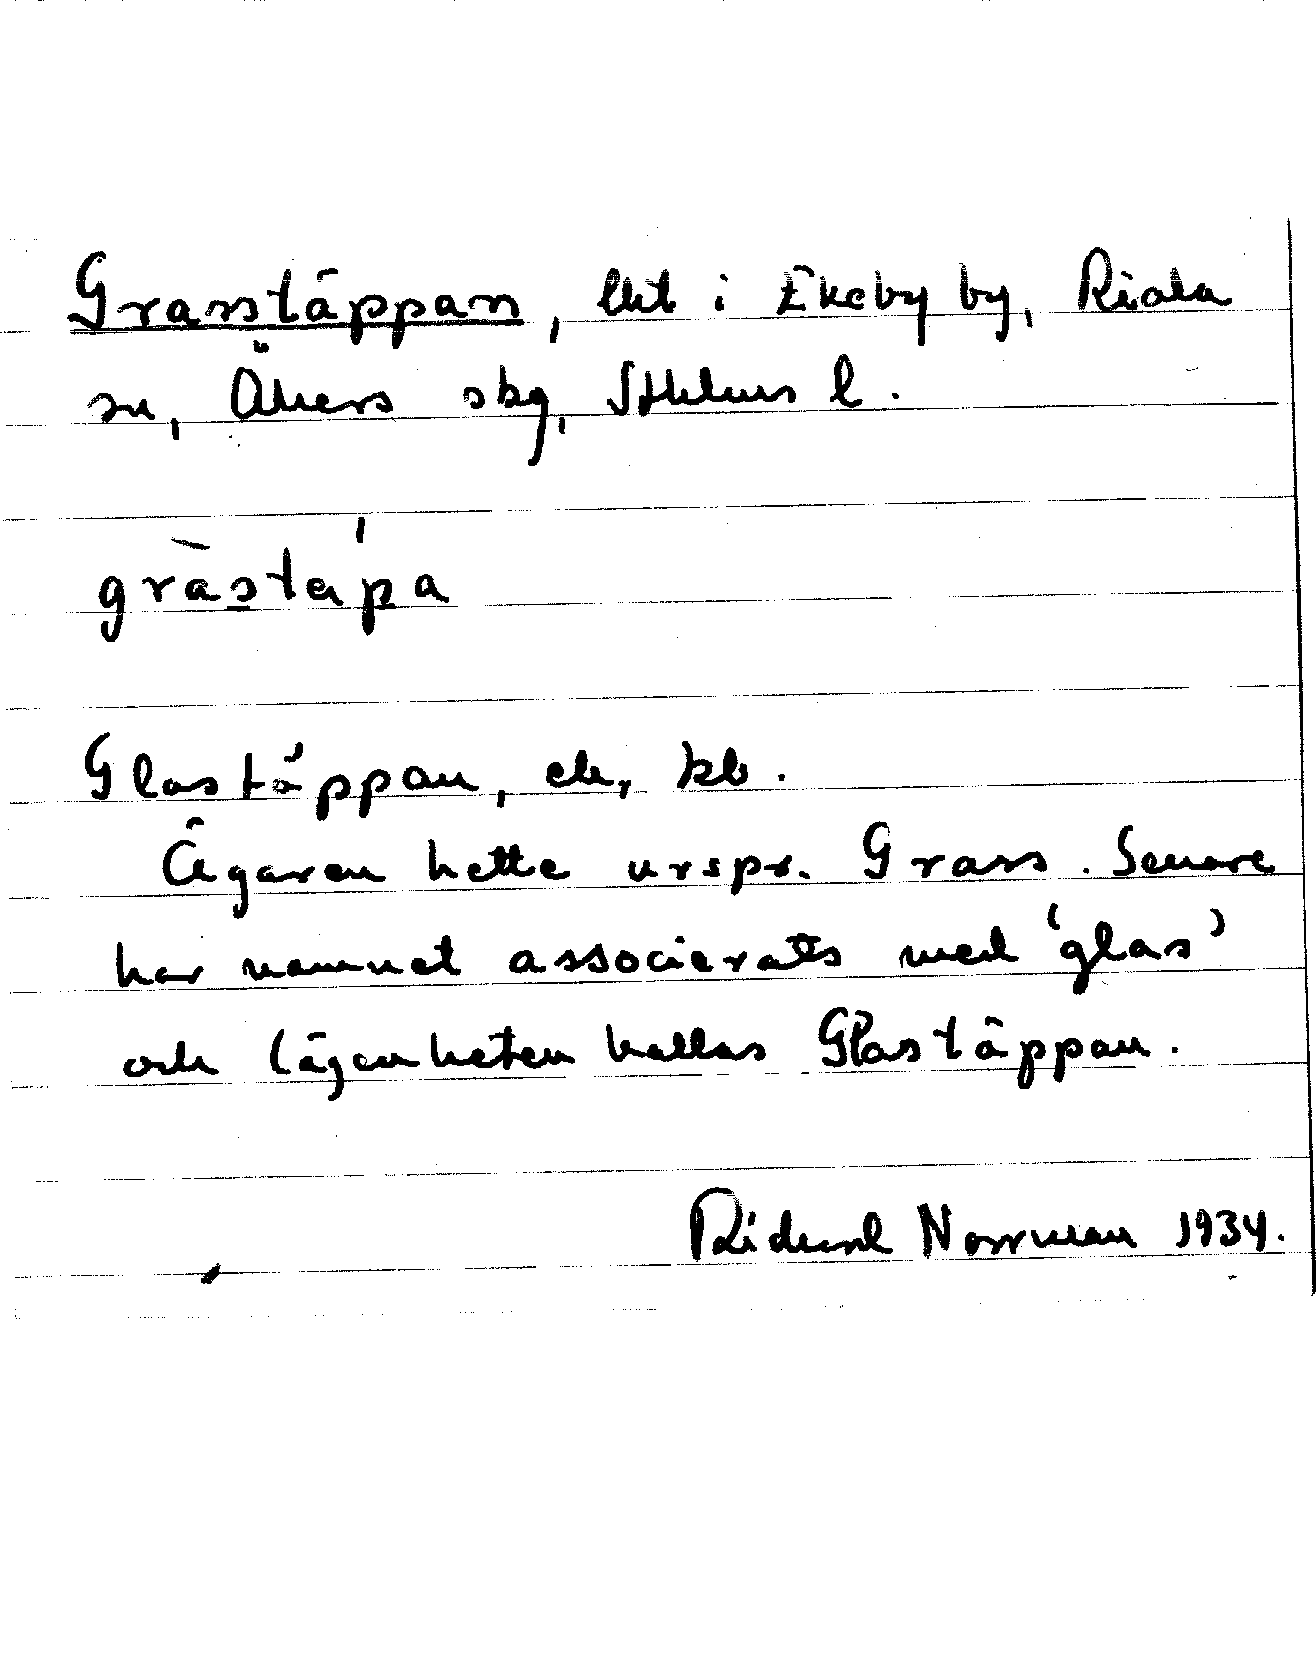 Grasstäppan, lht i Ekeby by, Riala
sn, Åkers skg, Sthlms l.
gràstäpa
Glastäppan, ek, kb.
Ägaren hette urspr. Grass. Senare
har namnet associerats med 'glas'
och lägenheten kallas Glastäppan.
Rickard Norrman 1934.